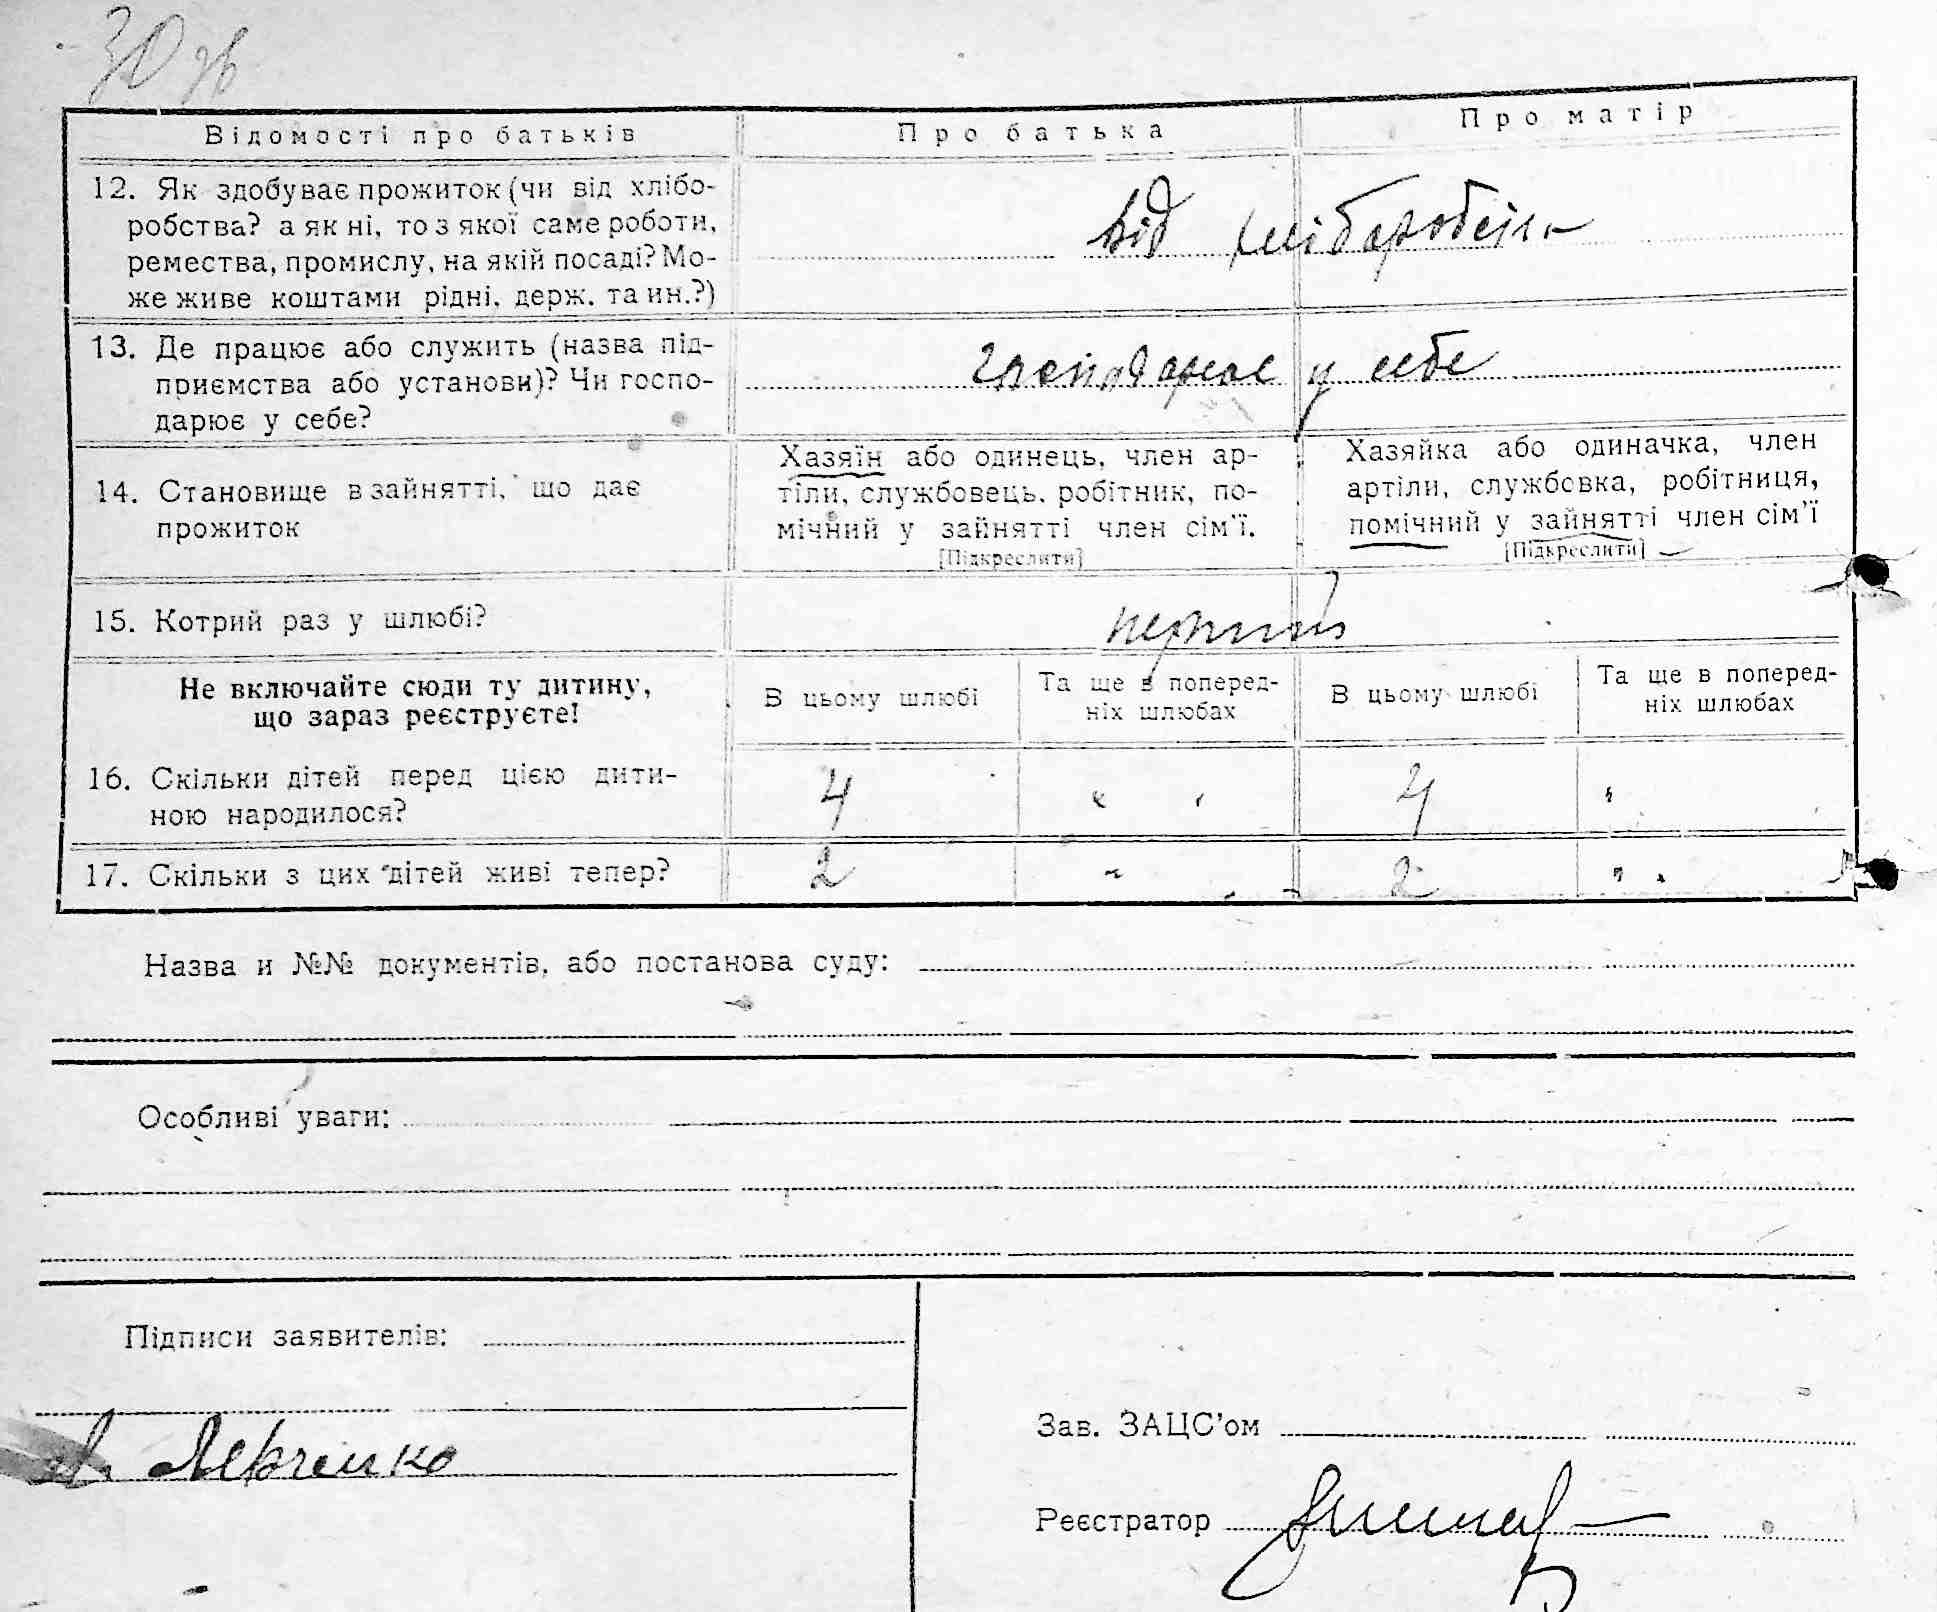 30 зв
Відомості про батьків
Про батька
Про матір
12. Як здобуває прожиток (чи від хлібо-
робства? а як ні, то з якої саме роботи,
ремества, промислу, на якій посаді? Мо-
же живе коштами рідні, держ. та ин.?)
від хліборобства
13. Де працює або служить (назва під-
приємства або установи)? Чи госпо-
дарює у себе?
господарює у себе
14. Становище в зайнятті, що дає
прожиток
Хазяїн або одинець, член ар-
тіли, службовець, робітник, по-
мічний у зайнятті член сім'ї.
[Підкреслити]
Хазяйка або одиначка, член
артіли, службовка, робітниця,
помічний у зайнятті член сім'ї
[Підкреслити]
15. Котрий раз у шлюбі?
перший
Не включайте сюди ту дитину,
що зараз реєструєте!
В цьому шлюбі
Та ще в поперед-
ніх шлюбах
В цьому шлюбі
Та ще в поперед-
ніх шлюбах
16. Скільки дітей перед цією дити-
ною народилося?
4 " 4 "
17. Скільки з цих дітей живі тепер?
2 " 2 "
Назва и №№ документів, або постанова суду:
Особливі уваги:
Підписи заявителів:
Зав. ЗАЦС'ом
Реєстратор